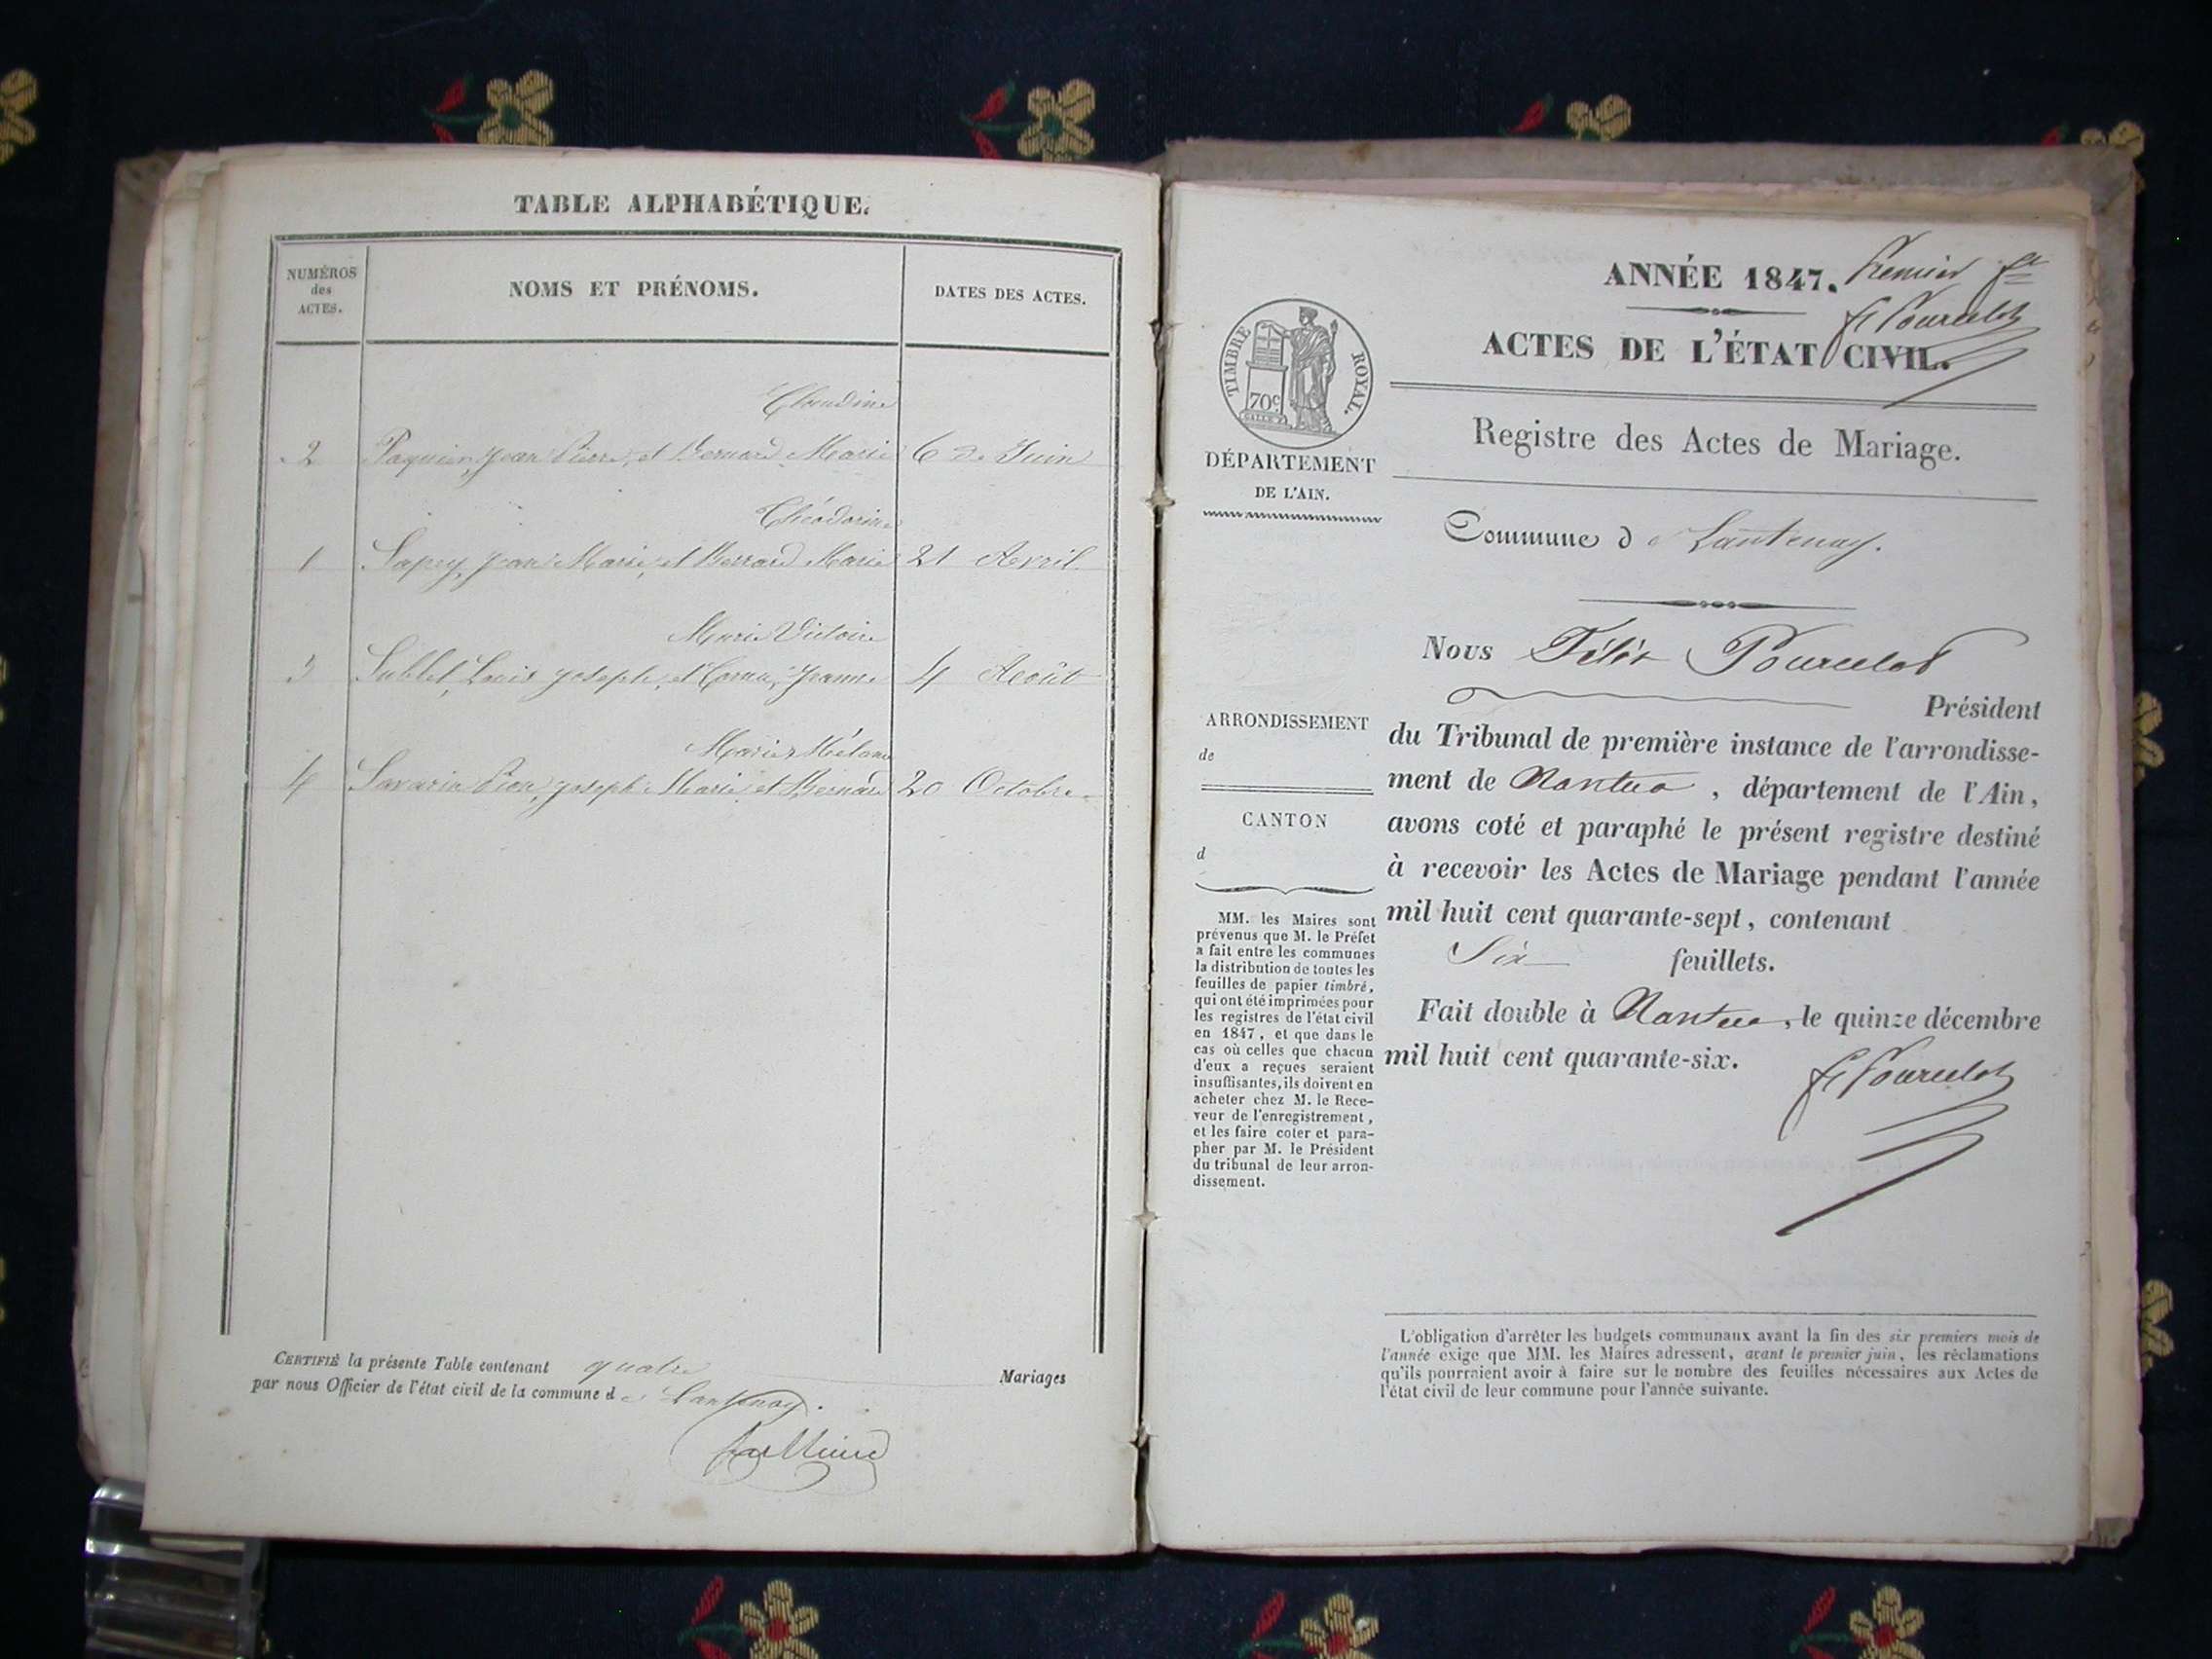 TABLE ALPHABÉTIQUE.
NUMÉROS
des
ACTES.
NOMS ET PRÉNOMS.
DATES DES ACTES.
Claudine
2 Paquier, Jean Pierre, et Bernard Marie 6 de Juin
Théodorine
1 Sapey, Jean Marie, et Bernard Marie 21 Avril
Marie Victoire
3 Sublet, Louis Joseph, et Jeanne 4 Août
Marie Mélanie
4 Savarin Joseph Marie et Bernard 20 Octobre
CERTIFIÉ la présente Table contenant quatre Mariages
par nous Officier de l'état civil de la commune de Lantenay.
ANNÉE 1847. Premier ft
F Pourcelot
ACTES DE L'ÉTAT CIVIL.
TIMBRE ROYAL.
70c
Registre des Actes de Mariage.
DÉPARTEMENT
DE L'AIN.
Commune de Lantenay.
Nous Félix Pourcelot
Président
du Tribunal de première instance de l'arrondisse-
ment de Nantua, département de l'Ain,
avons coté et paraphé le présent registre destiné
à recevoir les Actes de Mariage pendant l'année
mil huit cent quarante-sept, contenant
Six feuillets.
Fait double à Nantua, le quinze décembre
mil huit cent quarante-six.
F Pourcelot
ARRONDISSEMENT
de
CANTON
d
MM. les Maires sont
prévenus que M. le Préfet
a fait entre les communes
la distribution de toutes les
feuilles de papier timbré,
qui ont été imprimées pour
les registres de l'état civil
en 1847, et que dans le
cas où celles que chacun
d'eux a reçues seraient
insuffisantes, ils doivent en
acheter chez M. le Rece-
veur de l'enregistrement,
et les faire coter et para-
pher par M. le Président
du tribunal de leur arron-
dissement.
L'obligation d'arrêter les budgets communaux avant la fin des six premiers mois de
l'année exige que MM. les Maires adressent, avant le premier juin, les réclamations
qu'ils pourraient avoir à faire sur le nombre des feuilles nécessaires aux Actes de
l'état civil de leur commune pour l'année suivante.